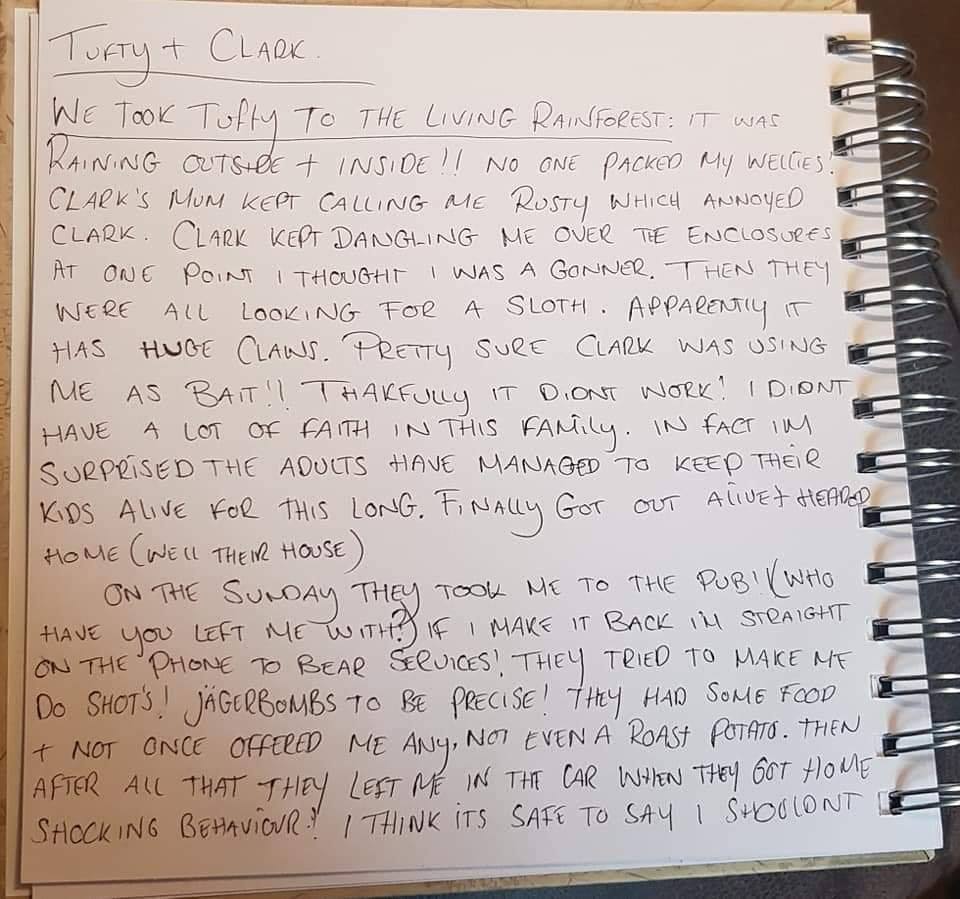 TUFTY + CLARK.
WE TOOK TUFTY TO THE LIVING RAINFOREST: IT WAS
RAINING OUTSIDE + INSIDE!! NO ONE PACKED MY WELLIES!
CLARK'S MUM KEPT CALLING ME RUSTY WHICH ANNOYED
CLARK. CLARK KEPT DANGLING ME OVER THE ENCLOSURES
AT ONE POINT I THOUGHT I WAS A GONNER. THEN THEY
WERE ALL LOOKING FOR A SLOTH. APPARENTLY IT
HAS HUGE CLAWS. PRETTY SURE CLARK WAS USING
ME AS BAIT!! THAKFULLY IT DIDNT WORK! I DIDNT
HAVE A LOT OF FAITH IN THIS FAMILY. IN FACT IM
SURPRISED THE ADULTS HAVE MANAGED TO KEEP THEIR
KIDS ALIVE FOR THIS LONG. FINALLY GOT OUT ALIVE + HEADED
HOME (WELL THEIR HOUSE)
ON THE SUNDAY THEY TOOK ME TO THE PUB! (WHO
HAVE YOU LEFT ME WITH?) IF I MAKE IT BACK IM STRAIGHT
ON THE PHONE TO BEAR SERVICES! THEY TRIED TO MAKE ME
DO SHOT'S! JÄGERBOMBS TO BE PRECISE! THEY HAD SOME FOOD
+ NOT ONCE OFFERED ME ANY, NOT EVEN A ROAST POTATO. THEN
AFTER ALL THAT THEY LEFT ME IN THE CAR WHEN THEY GOT HOME
SHOCKING BEHAVIOUR!! I THINK ITS SAFE TO SAY I SHOULDNT